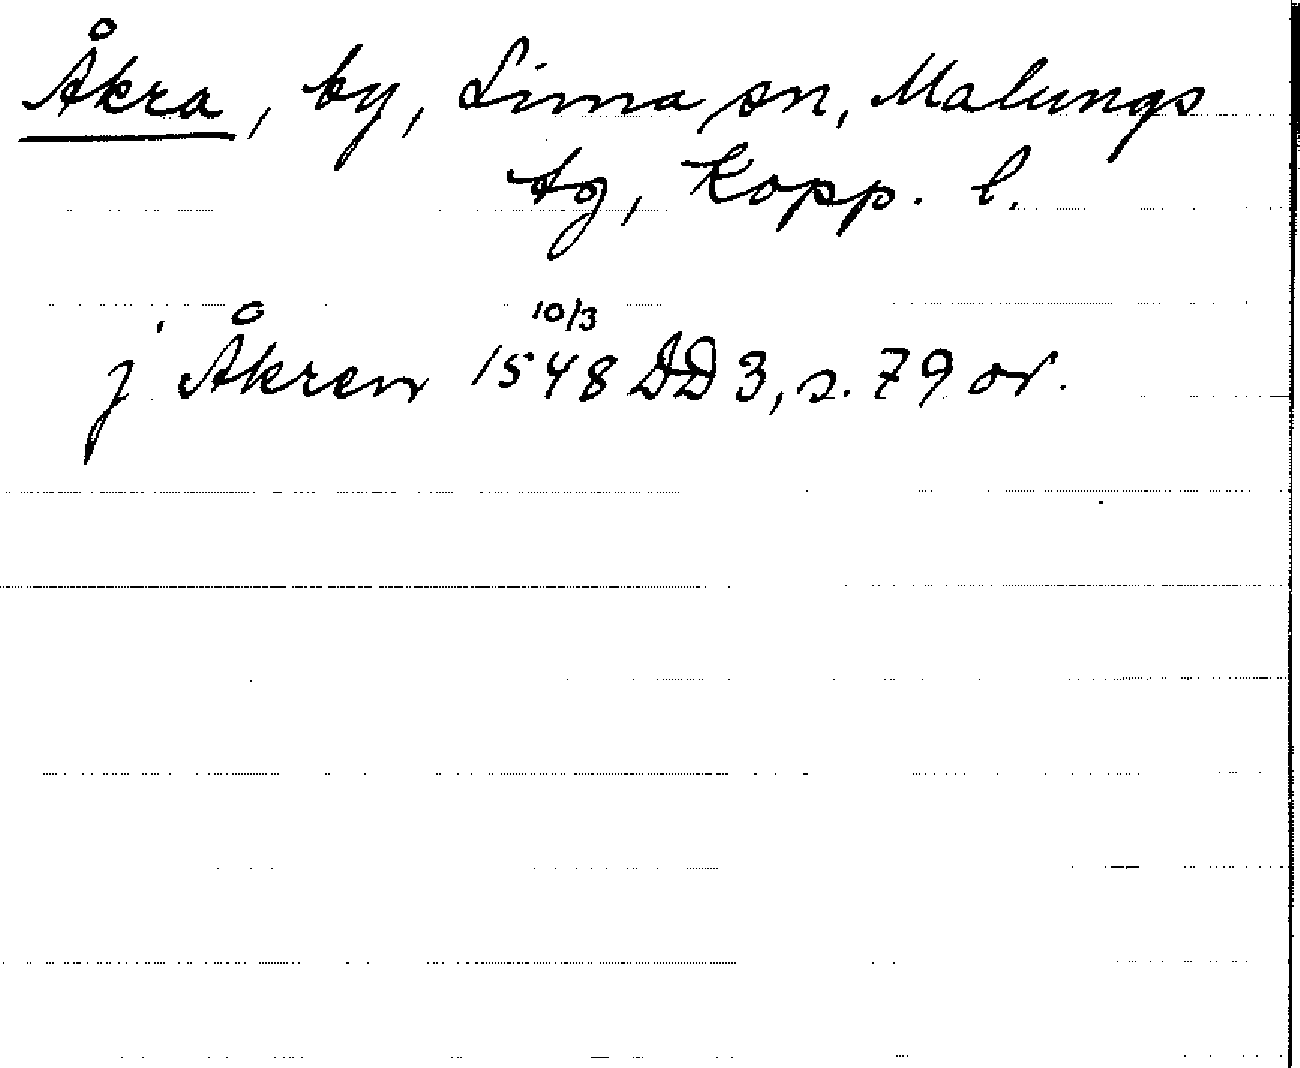 Åkra, by, Lima sn, Malungs
tg, Kopp. l.
j Åkren 10/3 1548 DD 3, s. 79 or.